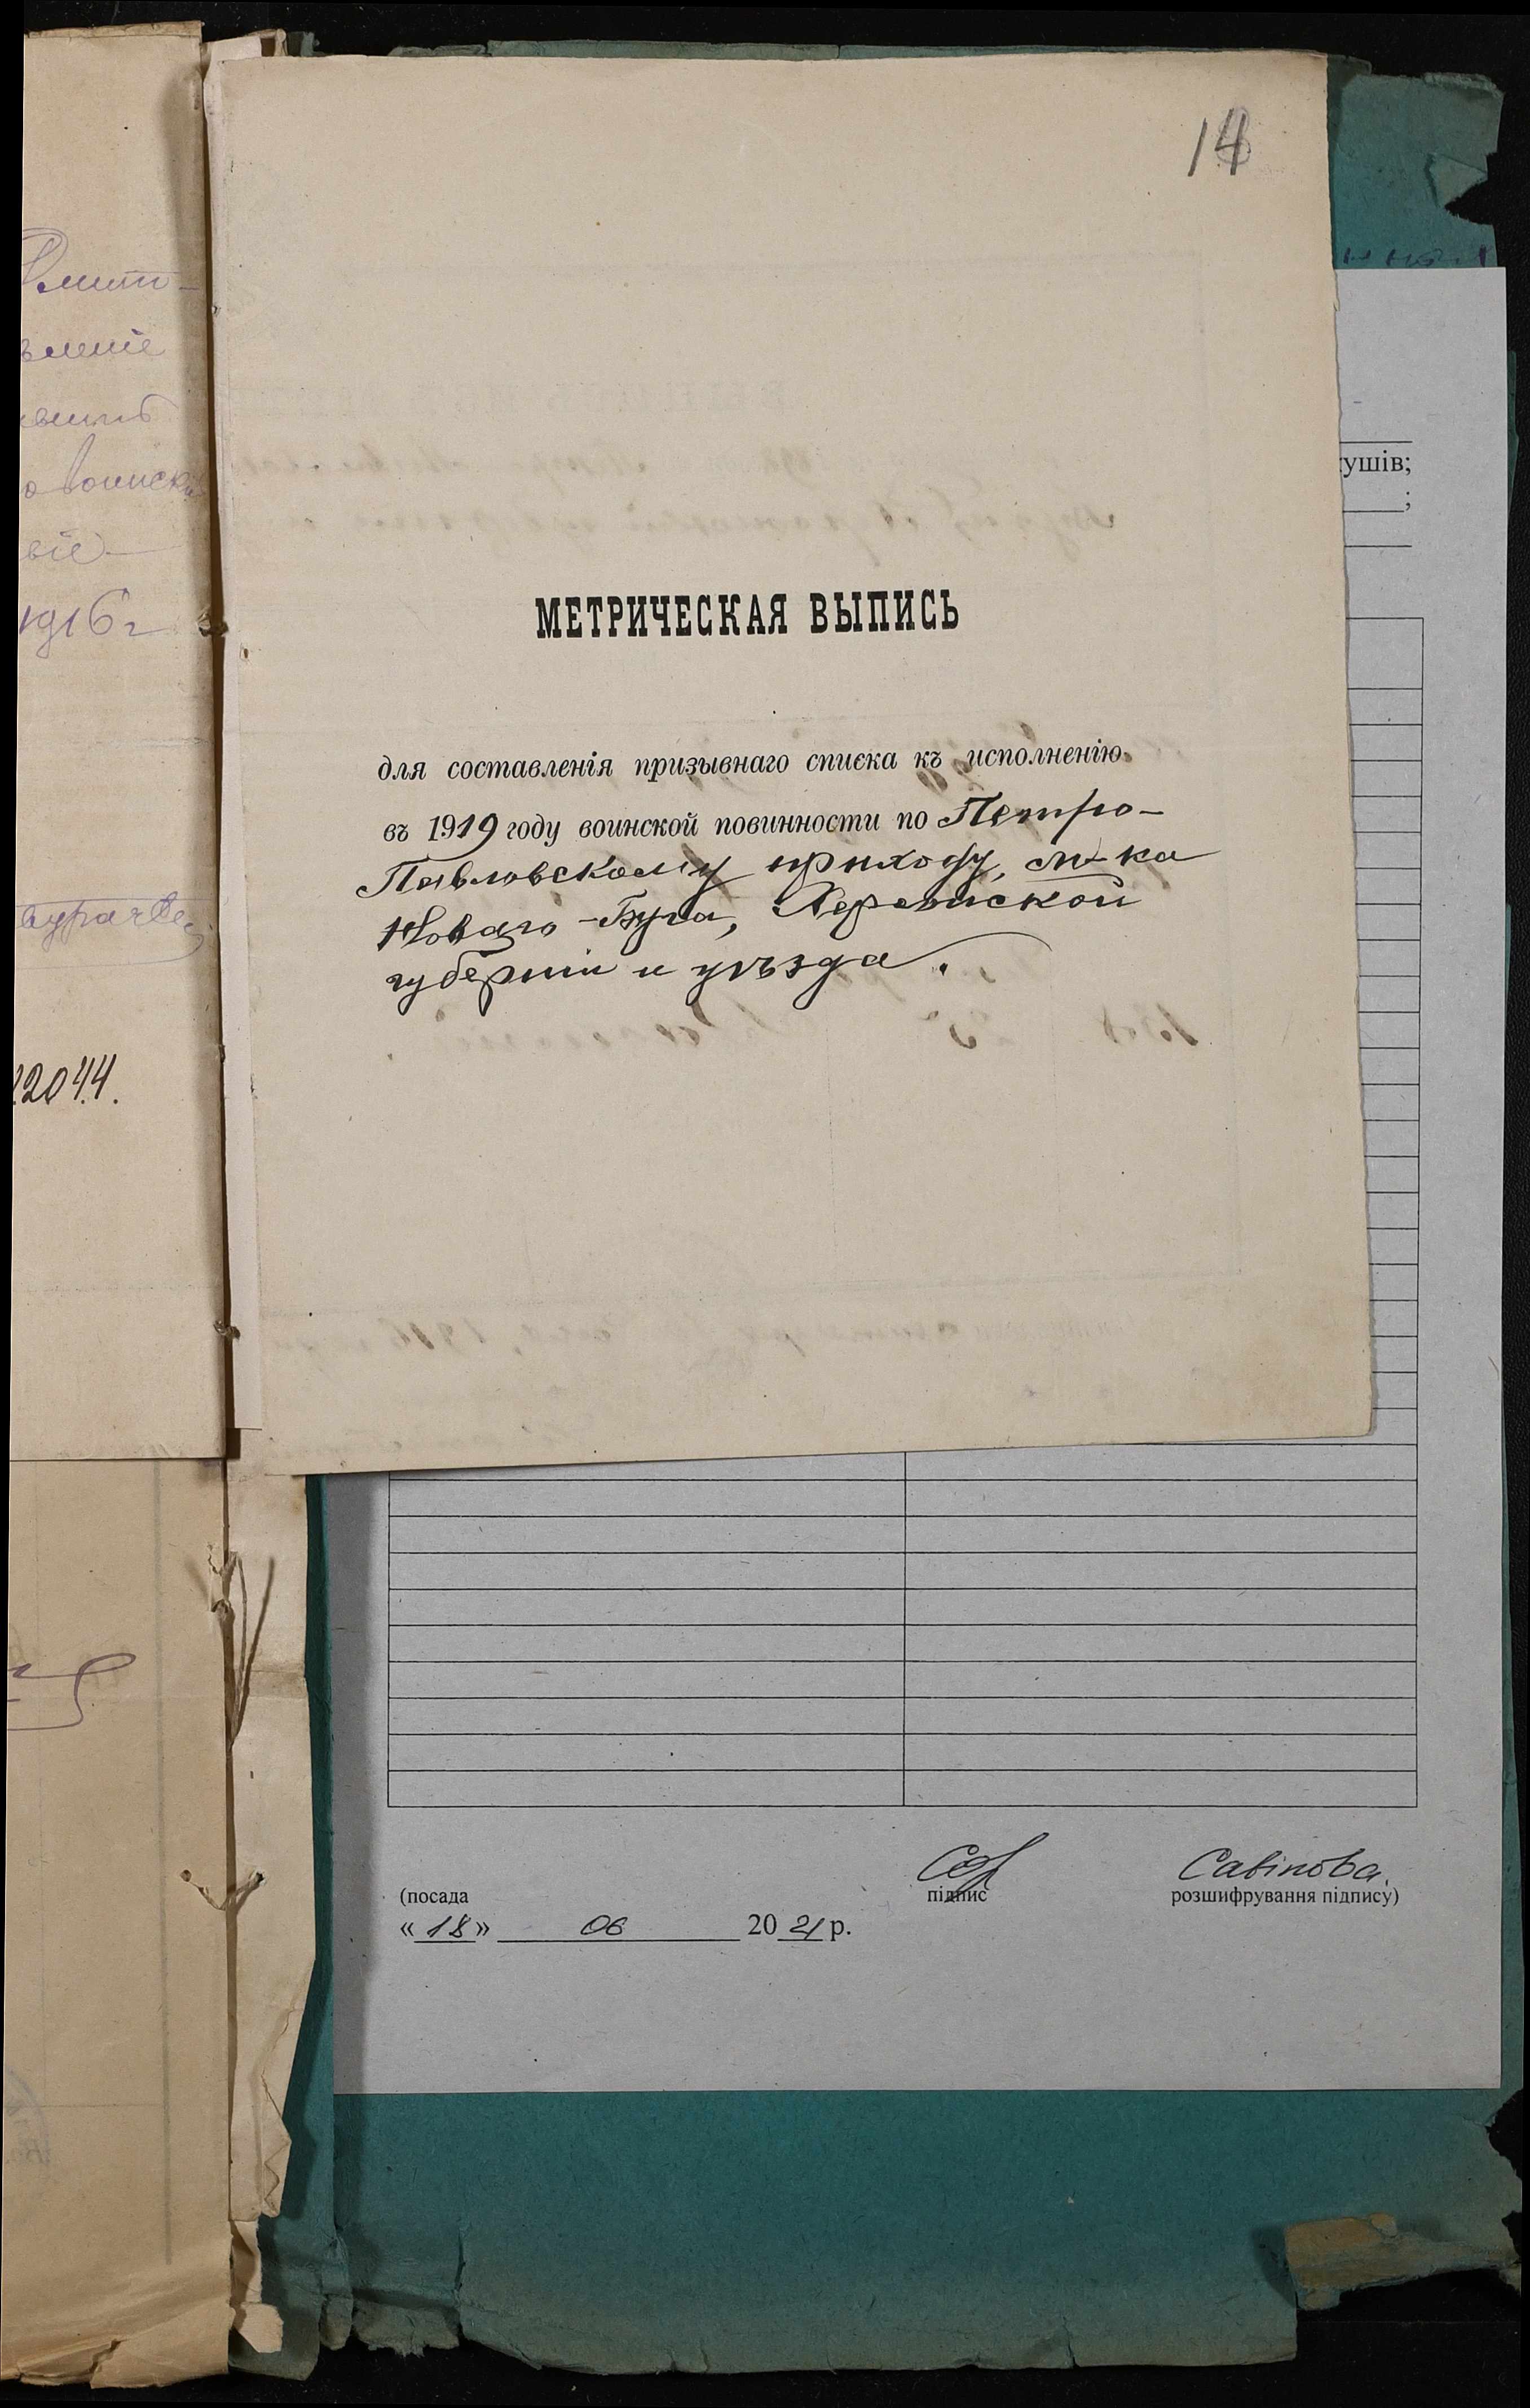 14
МЕТРИЧЕСКАЯ ВЫПИСЬ
для составленія призывнаго списка къ исполненію
въ 1919 году воинской повинности по Петро-
Павловскому приходу, м-ка
Новаго-Буга, Херсонской
губерніи и уѣзда.
1916 г
2044.
ушів;
;
(посада
підпис
Савінова
розшифрування підпису)
« 18 » 06 20 21 р.